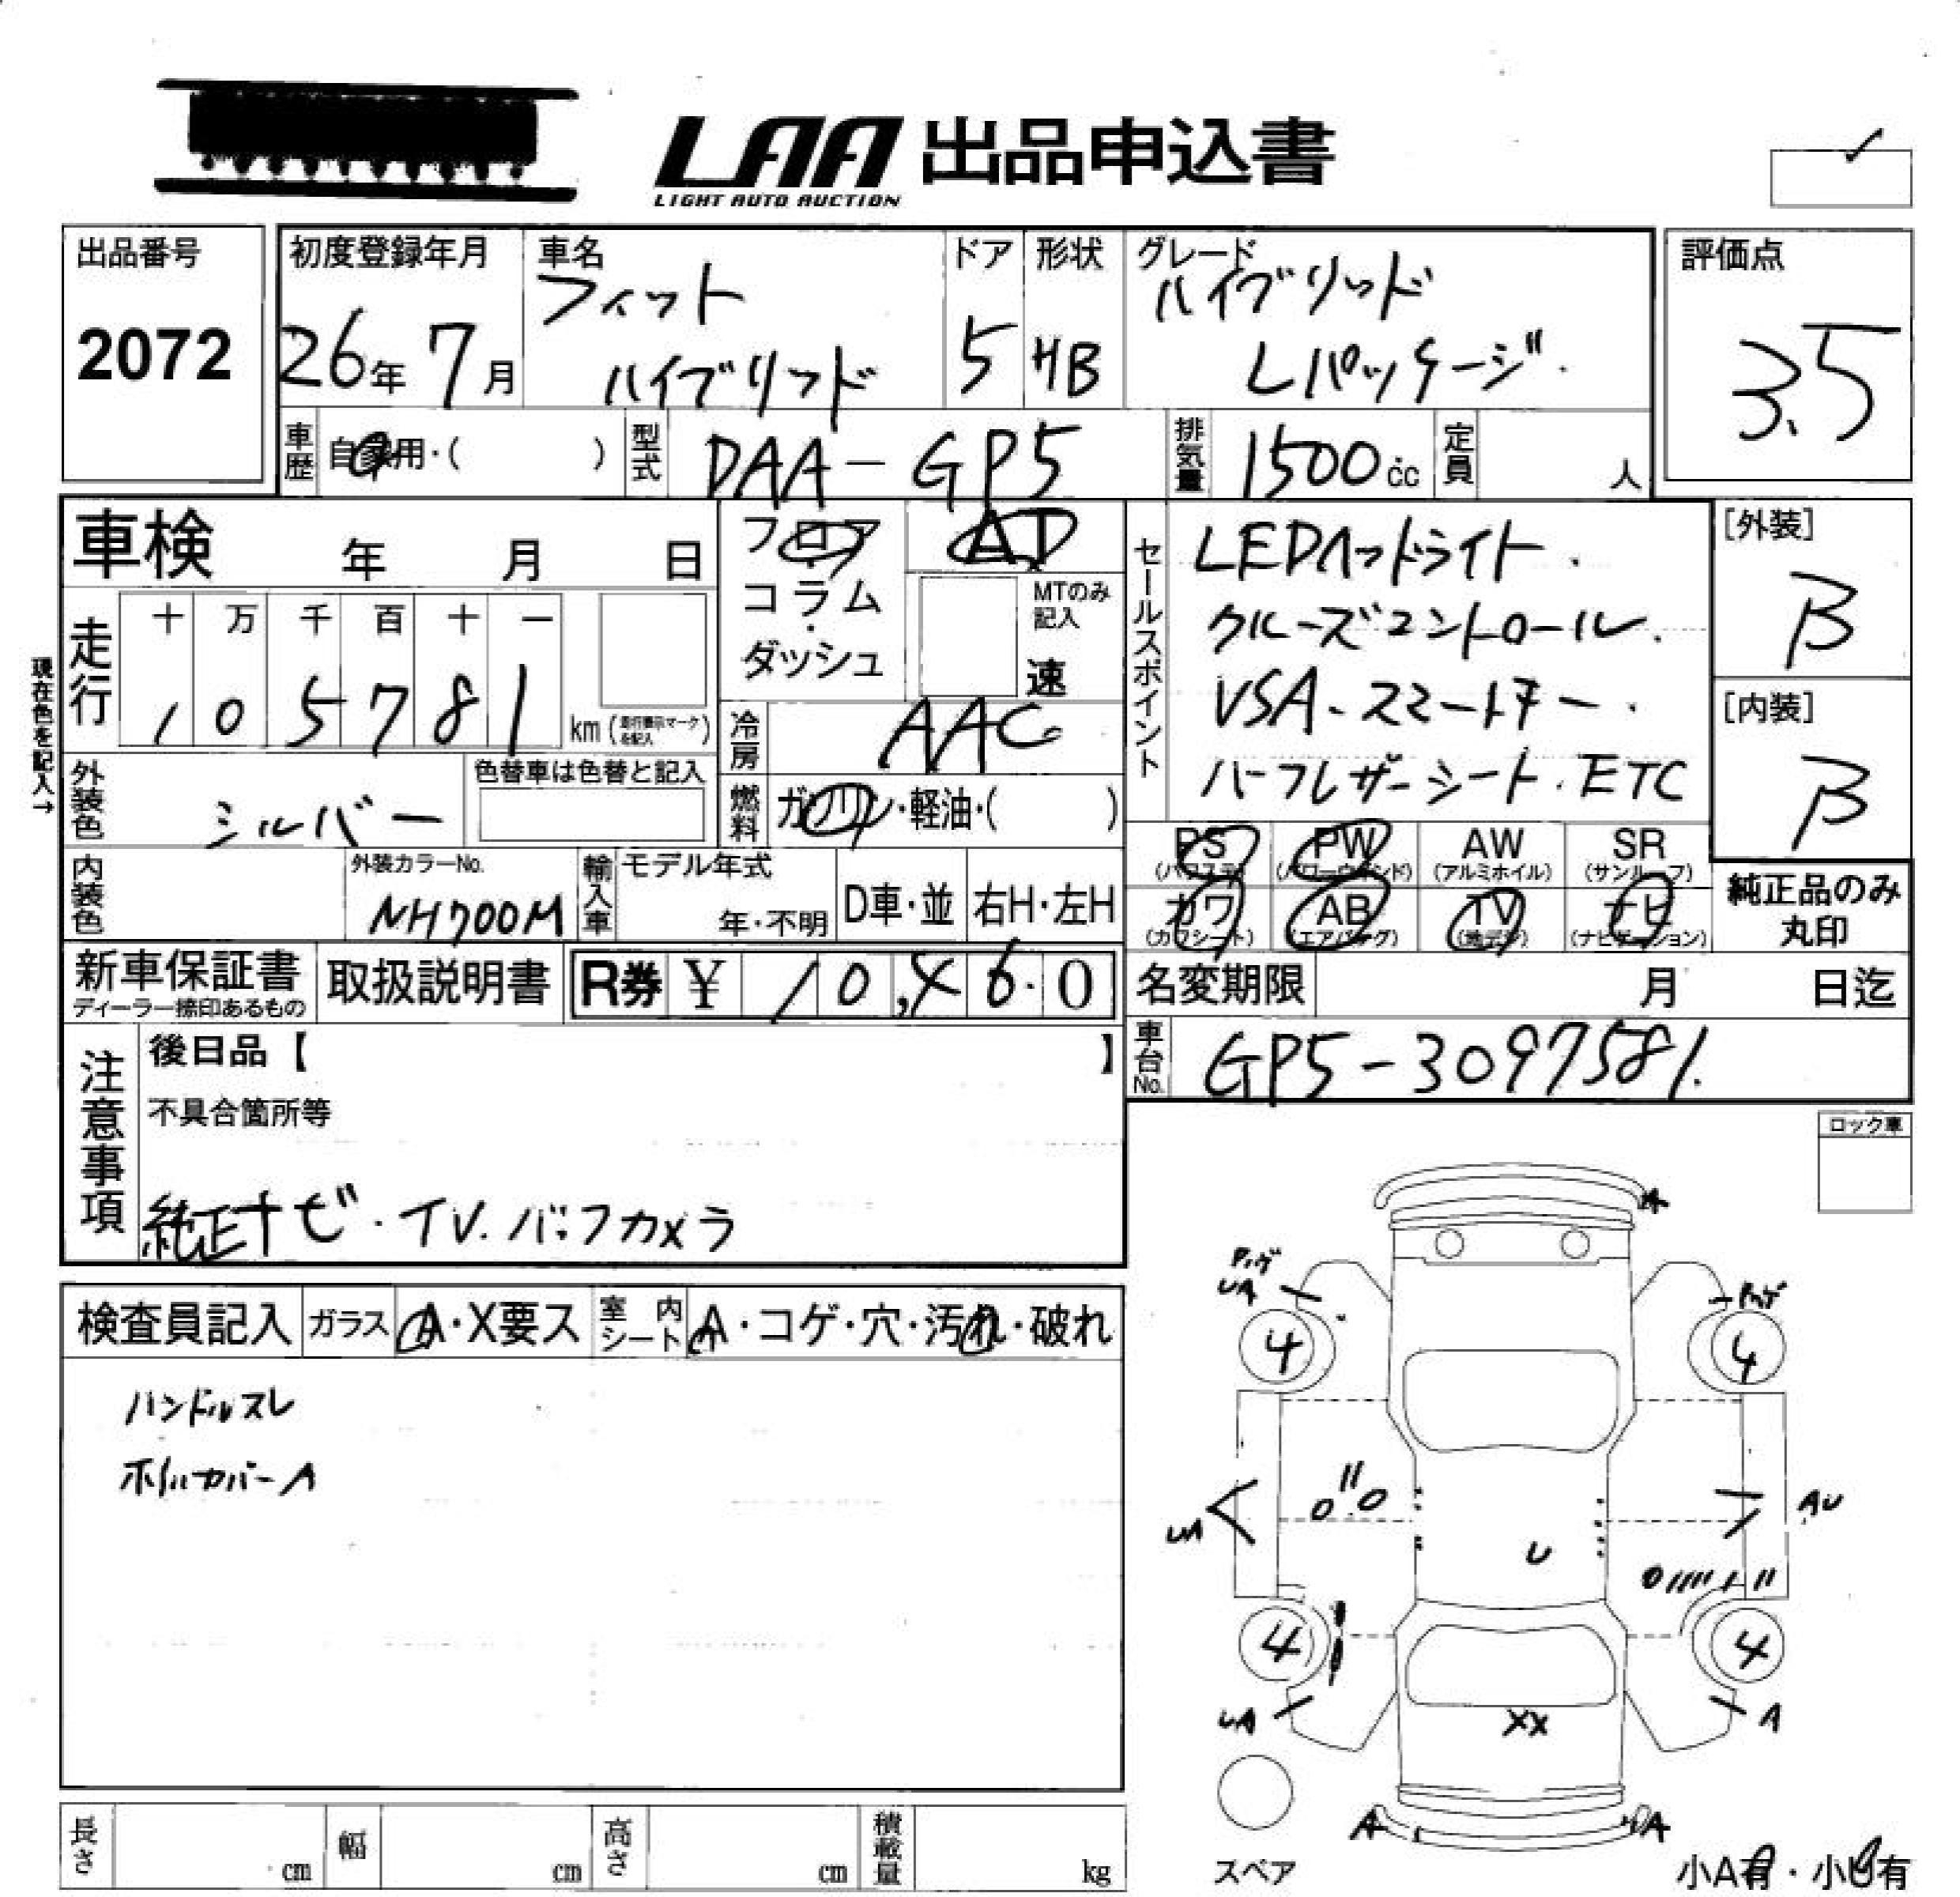 LAA 出品申込書
LIGHT AUTO AUCTION
出品番号
2072
初度登録年月
26年 7月
車名
フィット
ハイブリッド
ドア
5
形状
HB
グレード
ハイブリッド
Lパッケージ.
評価点
3.5
車歴 自家用・( )
型式 DAA-GP5
排気量 1500cc
定員 人
車検 年 月 日
フロア
コラム
・
ダッシュ
AT
MTのみ
記入
速
セールスポイント
LEDヘッドライト.
クルーズコントロール.
VSA.スマートキー.
ハーフレザーシート.ETC
[外装]
B
[内装]
B
現在色を記入→
走行
十 万 千 百 十 一
1 0 5 7 8 1
km(走行表示マークを記入)
冷房 AAC
外装色 シルバー
色替車は色替と記入
燃料 ガソリン・軽油・( )
PS (パワステ)
PW (パワーウインド)
AW (アルミホイル)
SR (サンルーフ)
カワ (カワシート)
AB (エアバッグ)
TV (地デジ)
ナビ (ナビゲーション)
純正品のみ
丸印
内装色
外装カラーNo.
NH700M
輸入車
モデル年式
年・不明
D車・並
右H・左H
新車保証書
ディーラー捺印あるもの
取扱説明書
R券 ¥ 10,460
名変期限 月 日迄
車台No. GP5-3097581.
注意事項
後日品【 】
不具合箇所等
純正ナビ.TV.バックカメラ
ロック車
検査員記入
ガラス A・X要ス
室内シート A・コゲ・穴・汚れ・破れ
ハンドルスレ
ホイルカバーA
A
UA
4
4
UA
AU
U
4
4
UA
XX
A
A
A
スペア
小A有・小U有
長さ cm
幅 cm
高さ cm
積載量 kg